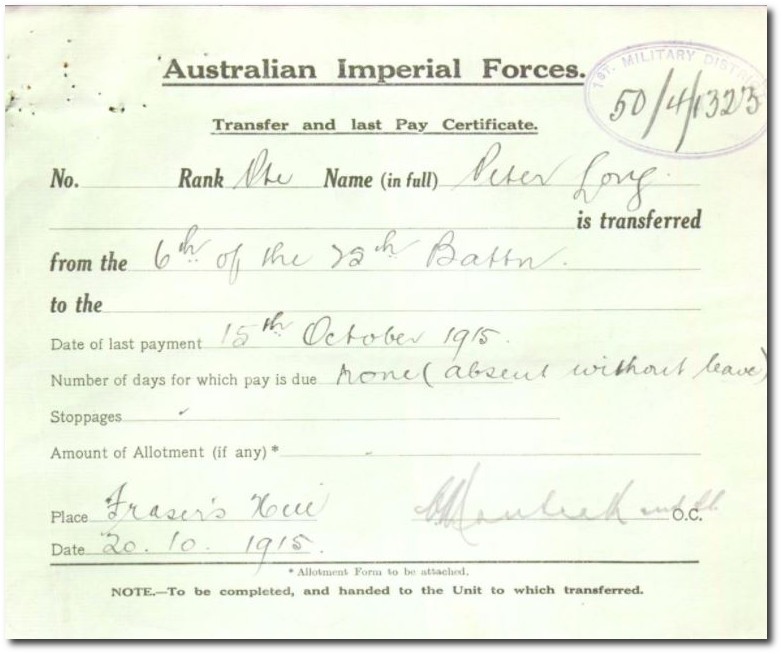 1ST. MILITARY DISTRI
50/4/1323
Australian Imperial Forces.
Transfer and last Pay Certificate.
No. Rank Pte Name (in full) Peter Long
is transferred
from the 6th of the 25th Battn.
to the
Date of last payment 15th October 1915.
Number of days for which pay is due none (absent without leave)
Stoppages
Amount of Allotment (if any) *
Place Fraser's Hill O.C.
Date 20.10.1915.
* Allotment Form to be attached.
NOTE.—To be completed, and handed to the Unit to which transferred.